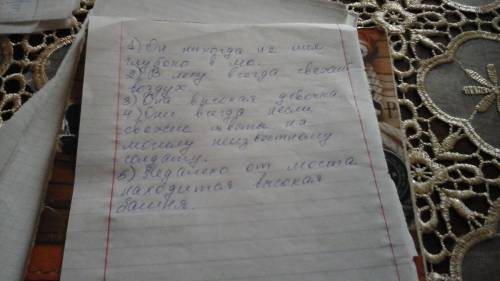 1) Он никогда не шел
глубоко в
2) В лесу всегда свежий
воздух.
3) Она высокая девочка
4) Они всегда несли
свежие цветы на
могилу неизвестному
солдату.
5) Недалеко от моста
находится высокая
башня.